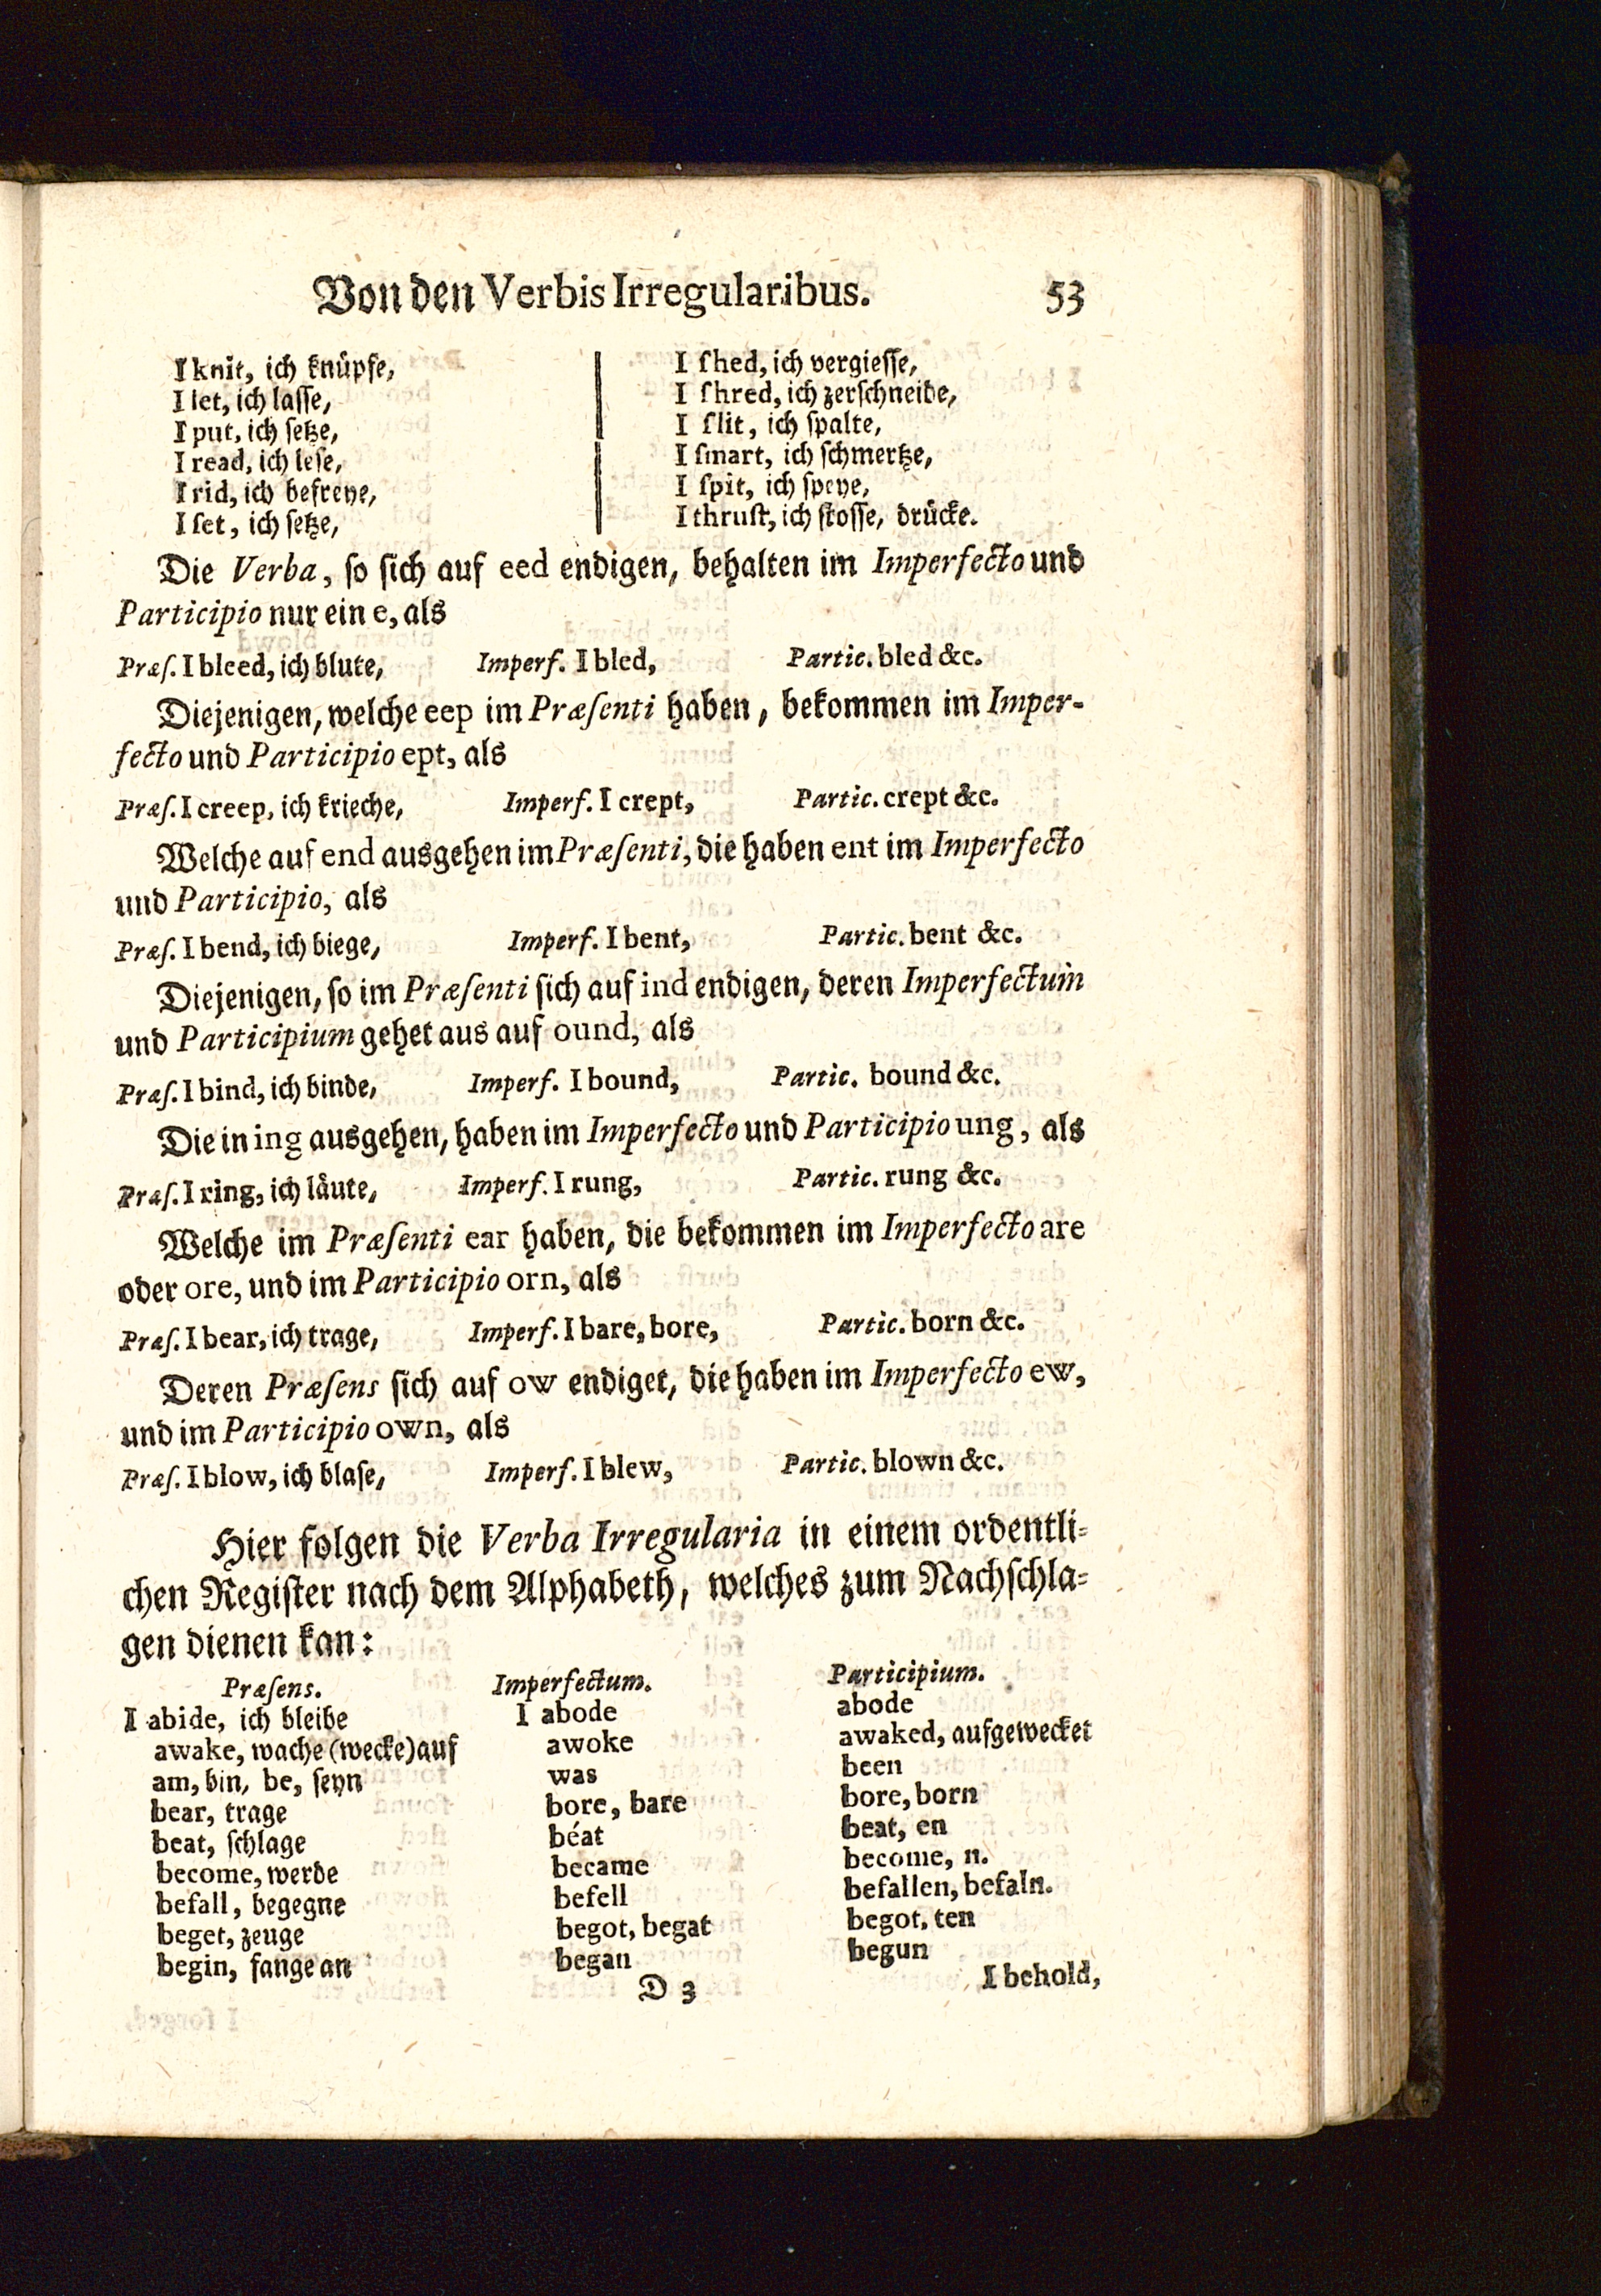 Von den Verbis Irregularibus. 53
I knit, ich knüpfe,
I let, ich lasse,
I put, ich setze,
I read, ich lese,
I rid, ich befreye,
I ſet, ich ſetze,
I ſhed, ich vergieſſe,
I ſhred, ich zerſchneide,
I ſlit, ich ſpalte,
I ſmart, ich ſchmertze,
I ſpit, ich ſpeye,
I thruſt, ich ſtoſſe, drücke.
Die Verba, ſo ſich auf eed endigen, behalten im Imperfecto und
Participio nur ein e, als
Præſ. I bleed, ich blute, Imperf. I bled, Partic. bled &c.
Diejenigen, welche eep im Præſenti haben, bekommen im Imper-
fecto und Participio ept, als
Præſ. I creep, ich krieche, Imperf. I crept, Partic. crept &c.
Welche auf end ausgehen im Præſenti, die haben ent im Imperfecto
und Participio, als
Præſ. I bend, ich biege, Imperf. I bent, Partic. bent &c.
Diejenigen, ſo im Præſenti ſich auf ind endigen, deren Imperfectum
und Participium gehet aus auf ound, als
Præſ. I bind, ich binde, Imperf. I bound, Partic. bound &c.
Die in ing ausgehen, haben im Imperfecto und Participio ung, als
Præſ. I ring, ich läute, Imperf. I rung, Partic. rung &c.
Welche im Præſenti ear haben, die bekommen im Imperfecto are
oder ore, und im Participio orn, als
Præſ. I bear, ich trage, Imperf. I bare, bore, Partic. born &c.
Deren Præſens ſich auf ow endiget, die haben im Imperfecto ew,
und im Participio own, als
Præſ. I blow, ich blaſe, Imperf. I blew, Partic. blown &c.
Hier folgen die Verba Irregularia in einem ordentli-
chen Regiſter nach dem Alphabeth, welches zum Nachſchla-
gen dienen kan:
Præſens. Imperfectum. Participium.
I abide, ich bleibe I abode abode
awake, wache (wecke) auf awoke awaked, aufgewecket
am, bin, be, ſeyn was been
bear, trage bore, bare bore, born
beat, ſchlage béat beat, en
become, werde became become, n.
befall, begegne befell befallen, befaln.
beget, zeuge begot, begat begot, ten
begin, fange an began begun
D 3 I behold,